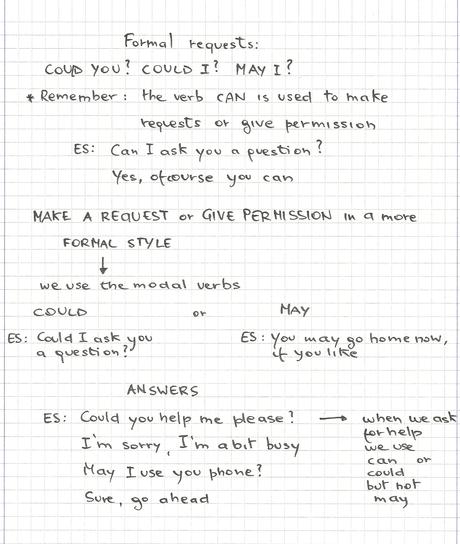 Formal requests:
COUD YOU? COULD I? MAY I?
* Remember: the verb CAN is used to make
requests or give permission
ES: Can I ask you a question?
Yes, ofcourse you can
MAKE A REQUEST or GIVE PERMISSION in a more
FORMAL STYLE
↓
we use the modal verbs
COULD or MAY
ES: Could I ask you
a question?
ES: You may go home now,
if you like
ANSWERS
ES: Could you help me please? → when we ask
for help
we use
can or
could
but not
may
I'm sorry, I'm a bit busy
May I use you phone?
Sure, go ahead